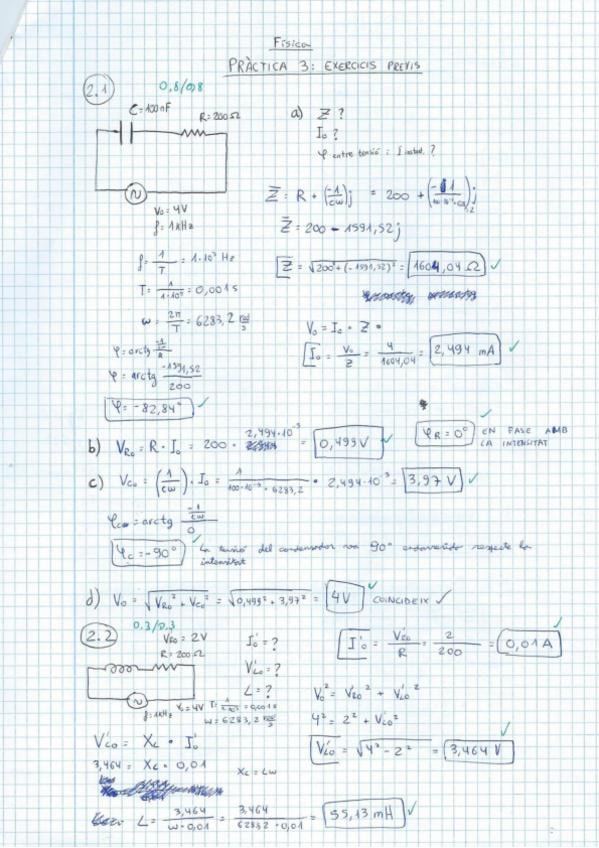 Física
PRÀCTICA 3: EXERCICIS PREVIS
2.1
0,8/0,8
C=100nF
R=200Ω
V₀ = 4V
f= 1kHz
a) Z ?
I₀ ?
φ entre tensió i I instat. ?
Z̄ = R + (-1/cω)j = 200 + (-1/
Z̄ = 200 - 1591,52j
Z̄ = √(200² + (-1591,52)²) = 1604,04 Ω ✓
f = 1/T = 1·10³ Hz
T = 1/1·10³ = 0,001s
ω = 2π/T = 6283,2 rad/s
V₀ = I₀ · Z
I₀ = V₀/Z = 4/1604,04 = 2,494 mA ✓
φ = arctg (-1/cω)/R
φ = arctg -1591,52/200
φ = -82,84° ✓
b) VR₀ = R · I₀ = 200 · 2,494·10⁻³ = 0,499V ✓
φR = 0° ✓ EN FASE AMB LA INTENSITAT
c) VC₀ = (1/cω) · I₀ = 1/(100·10⁻⁹ · 6283,2) · 2,494·10⁻³ = 3,97 V ✓
φC = arctg (-1/cω)/0
φC = -90° ✓ La tensió del condensador va 90° endarrerida respecte la
intensitat
d) V₀ = √(VR₀² + VC₀²) = √(0,499² + 3,97²) = 4V ✓ COINCIDEIX ✓
2.2
0,3/0,3
VR₀ = 2V
R = 200Ω
V₀ = 4V
f= 1kHz
T = 1/1·10³ = 0,001s
ω = 6283,2 rad/s
I'₀ = ?
V'L₀ = ?
L = ?
I'₀ = V'R₀/R = 2/200 = 0,01A ✓
V₀² = VR₀² + V'L₀²
4² = 2² + V'L₀²
V'L₀ = √(4² - 2²) = 3,464 V ✓
V'L₀ = XL · I'₀
3,464 = XL · 0,01
XL = Lω
L = 3,464/(ω · 0,01) = 3,464/(6283,2 · 0,01) = 55,13 mH ✓